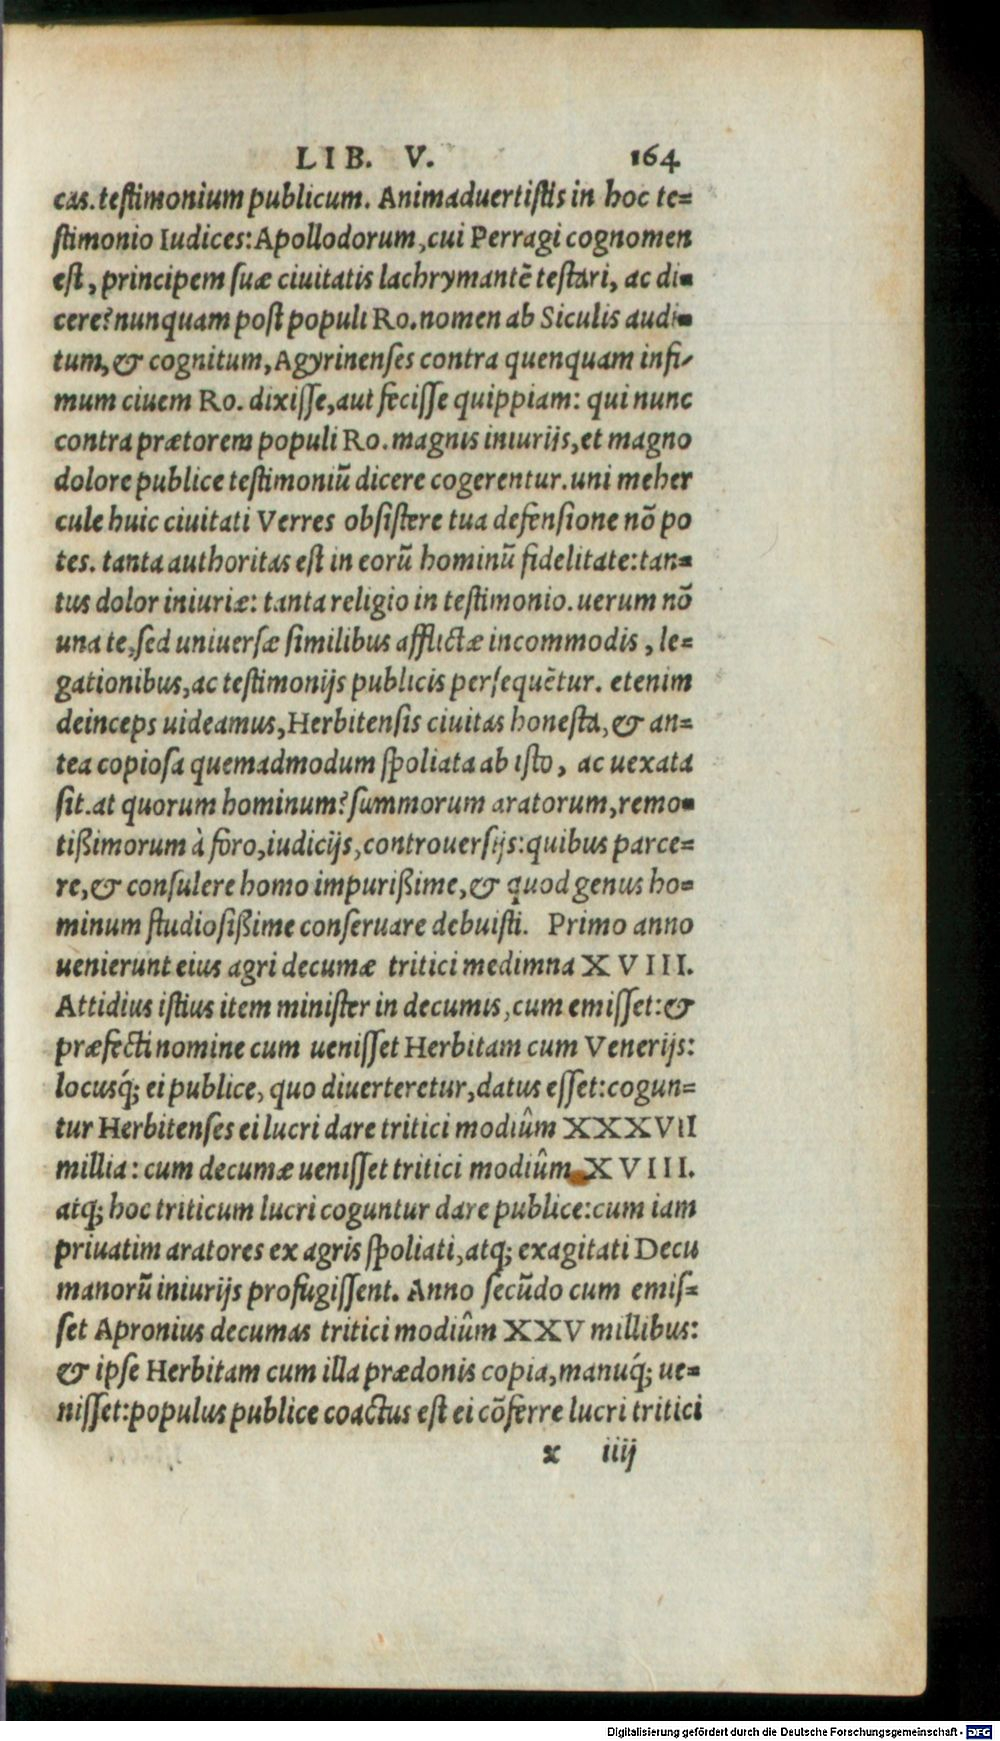 LIB. V. 164
cas. testimonium publicum. Animaduertistis in hoc te=
stimonio Iudices: Apollodorum, cui Perragi cognomen
est, principem suæ ciuitatis lachrymantẽ testari, ac di=
cere? nunquam post populi Ro. nomen ab Siculis audi=
tum, & cognitum, Agyrinenses contra quenquam infi-
mum ciuem Ro. dixisse, aut fecisse quippiam: qui nunc
contra prætorem populi Ro. magnis iniurijs, et magno
dolore publice testimoniũ dicere cogerentur. uni meher
cule huic ciuitati Verres obsistere tua defensione nõ po
tes. tanta authoritas est in eorũ hominũ fidelitate: tan=
tus dolor iniuriæ: tanta religio in testimonio. uerum nõ
una te, sed uniuersæ similibus afflictæ incommodis, le=
gationibus, ac testimonijs publicis persequẽtur. etenim
deinceps uideamus, Herbitensis ciuitas honesta, & an=
tea copiosa quemadmodum spoliata ab isto, ac uexata
sit. at quorum hominum? summorum aratorum, remo=
tißimorum à foro, iudicijs, controuersijs: quibus parce=
re, & consulere homo impurißime, & quod genus ho=
minum studiosißime conseruare debuisti. Primo anno
uenierunt eius agri decumæ tritici medimna XVIII.
Attidius istius item minister in decumis, cum emisset: &
præfecti nomine cum uenisset Herbitam cum Venerijs:
locusq́; ei publice, quo diuerteretur, datus esset: cogun=
tur Herbitenses ei lucri dare tritici modiûm XXXVII
millia: cum decumæ uenisset tritici modiûm XVIII.
atq; hoc triticum lucri coguntur dare publice: cum iam
priuatim aratores ex agris spoliati, atq; exagitati Decu
manorũ iniurijs profugissent. Anno secũdo cum emis=
set Apronius decumas tritici modiûm XXV millibus:
& ipse Herbitam cum illa prædonis copia, manuq́; ue=
nisset: populus publice coactus est ei cõferre lucri tritici
x iiij
Digitalisierung gefördert durch die Deutsche Forschungsgemeinschaft - DFG